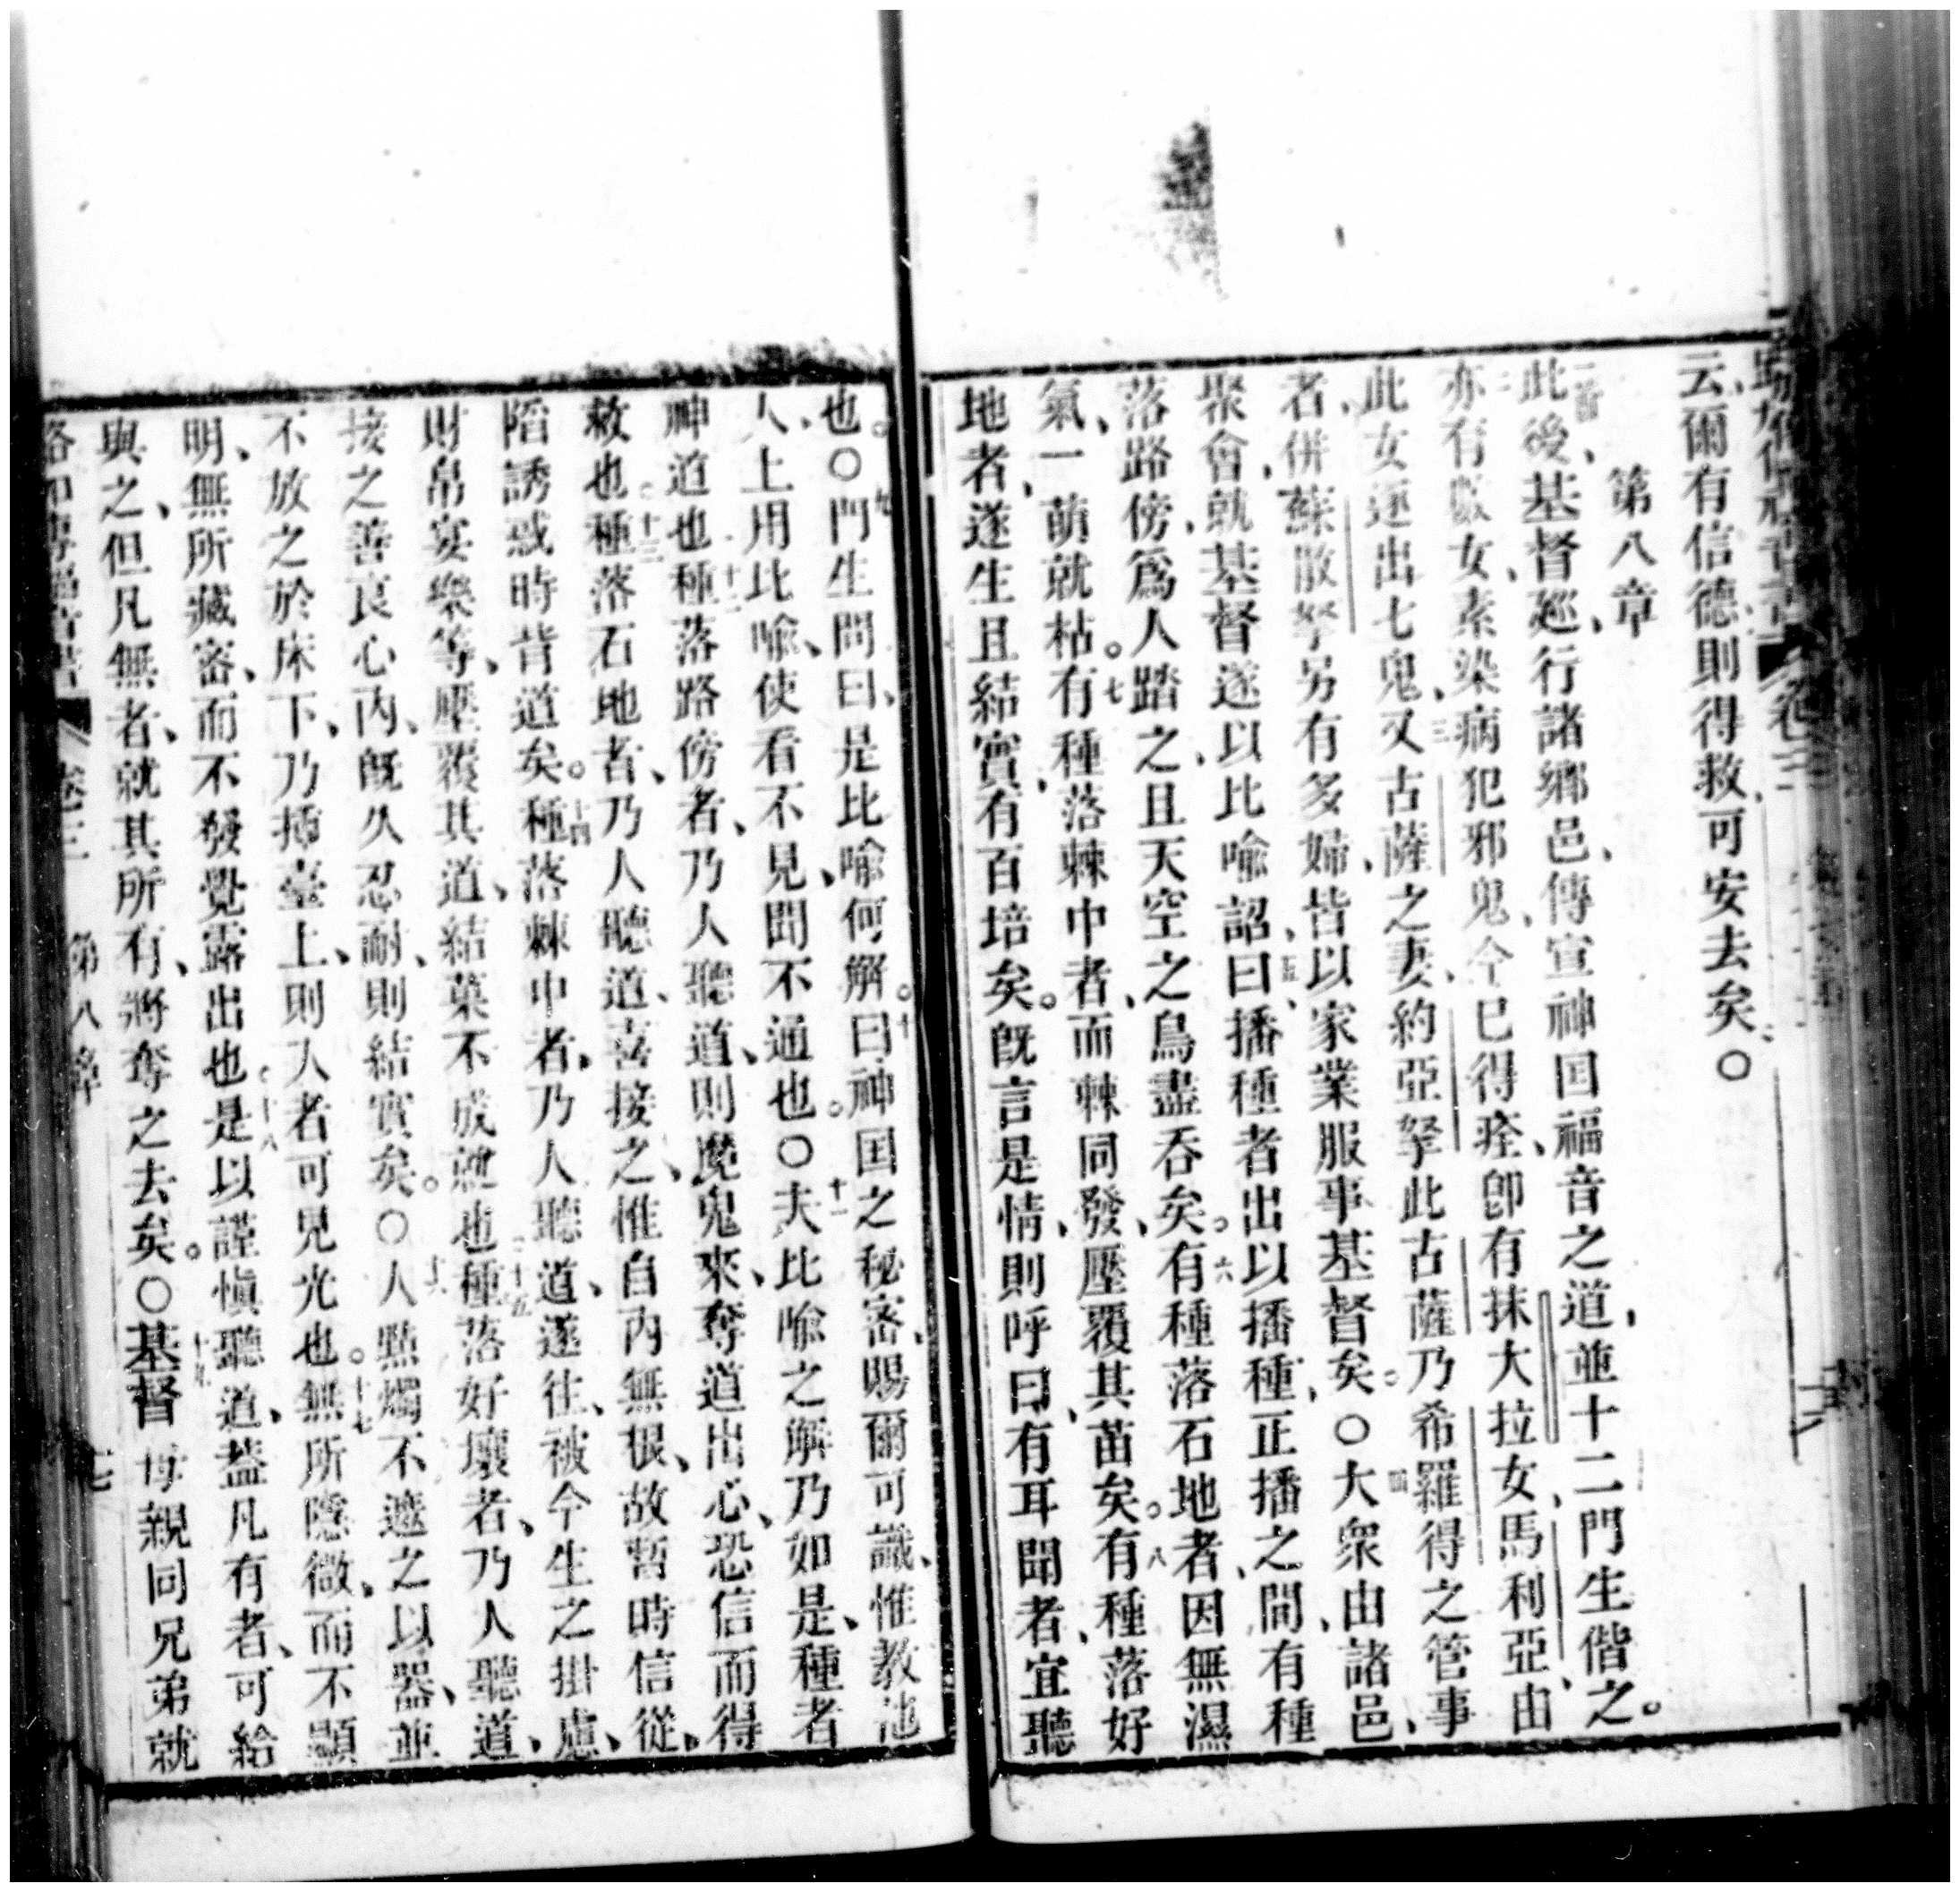 云、爾有信德、則得救、可安去矣、〇
第八章
此後、基督廵行諸鄉邑、傳宣神囯福音之道、並十二門生偕之。
亦有數女、素染病犯邪鬼、今已得痊、卽有抹大拉女、馬利亞、由
此女逐出七鬼、三又古薩之妻、約亞拏、此古薩乃希羅得之管事
者、併蘇散拏、另有多婦、皆以家業服事基督矣。〇四大衆由諸邑、
聚會、就基督、遂以比喻詔曰、五播種者出以播種、正播之間、有種
落路傍、爲人踏之、且天空之鳥盡吞矣。六有種落石地者、因無濕
氣、一萌就枯。七有種落棘中者、而棘同發、壓覆其苗矣。八有種落好
地者、遂生且結實、有百培矣。旣言是情、則呼曰、有耳聞者、宜聽
也。〇九門生問曰、是比喻何解。十曰神囯之秘密、賜爾可識、惟教他
人、上用比喻、使看不見、聞不通也。〇十一夫比喻之解、乃如是、種者
神道也、十二種落路傍者、乃人聽道、則魔鬼來、奪道出心、恐信而得
救也。十三種落石地者、乃人聽道、喜接之、惟自內無根、故暫時信從、
陷誘惑時背道矣。十四種落棘中者、乃人聽道、遂往、被今生之掛慮、
財帛宴樂等、壓覆其道、結菓不成就也。十五種落好壤者、乃人聽道、
接之善良心內、旣久忍耐、則結實矣。〇十六人㸃燭不遮之以器、並
不放之於床下、乃插臺上、則入者可見光也。十七無所隱微、而不顯
明、無所藏密、而不發覺露出也。十八是以謹愼聽道、蓋凡有者、可給
與之、但凡無者、就其所有、將奪之去矣。〇十九基督母親同兄弟就
卷三 第八章